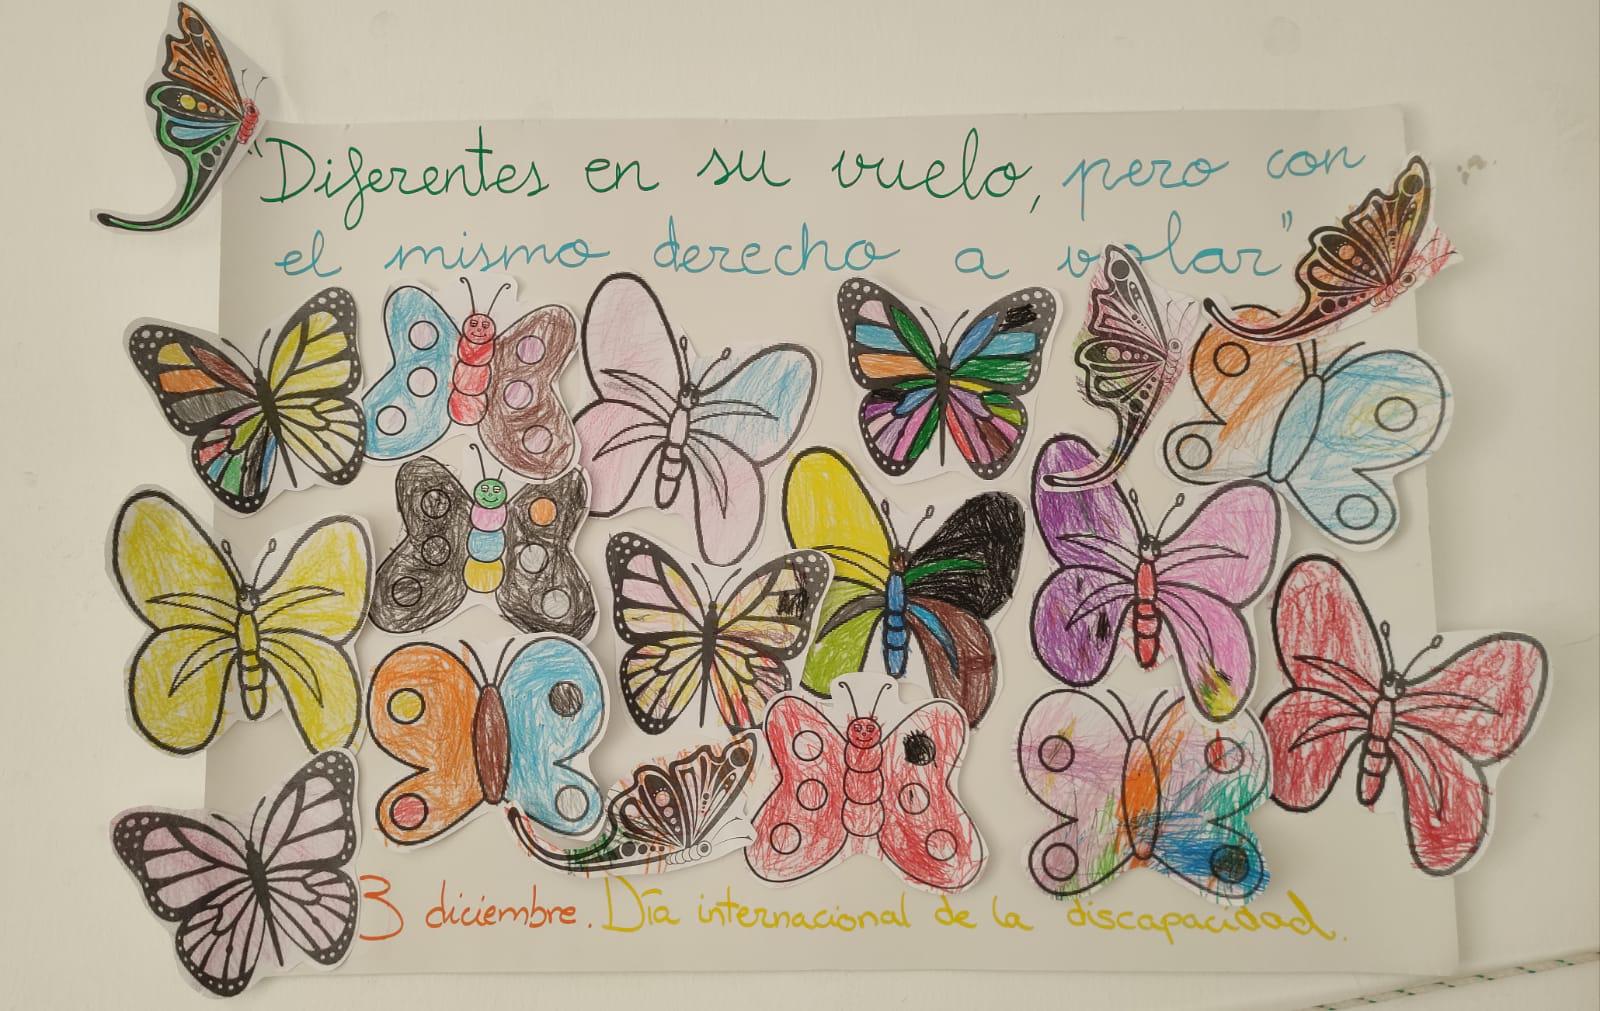 "Diferentes en su vuelo, pero con
el mismo derecho a volar"
3 diciembre. Día internacional de la discapacidad.